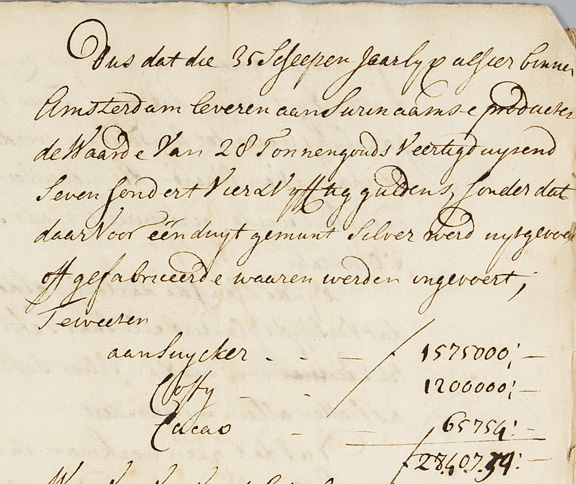 Dus dat die 35 Scheepen Jaarlyx alhier binne
Amsterdam leveren aan Surinaamse producte
de Waarde Van 28 Tonnengouds Veertigduysend
Seven hondert Vier & Vyfftig guldens, sonder dat
daar Voor één duyt gemunt Silver werd uytgevoe
off gefabriceerde waaren werden ingevoert;
Te weeten
aan Suycker - - - ƒ 1575000:-
Coffy - - 1200000:-
Cacao - 65754:-
ƒ 2840754:-